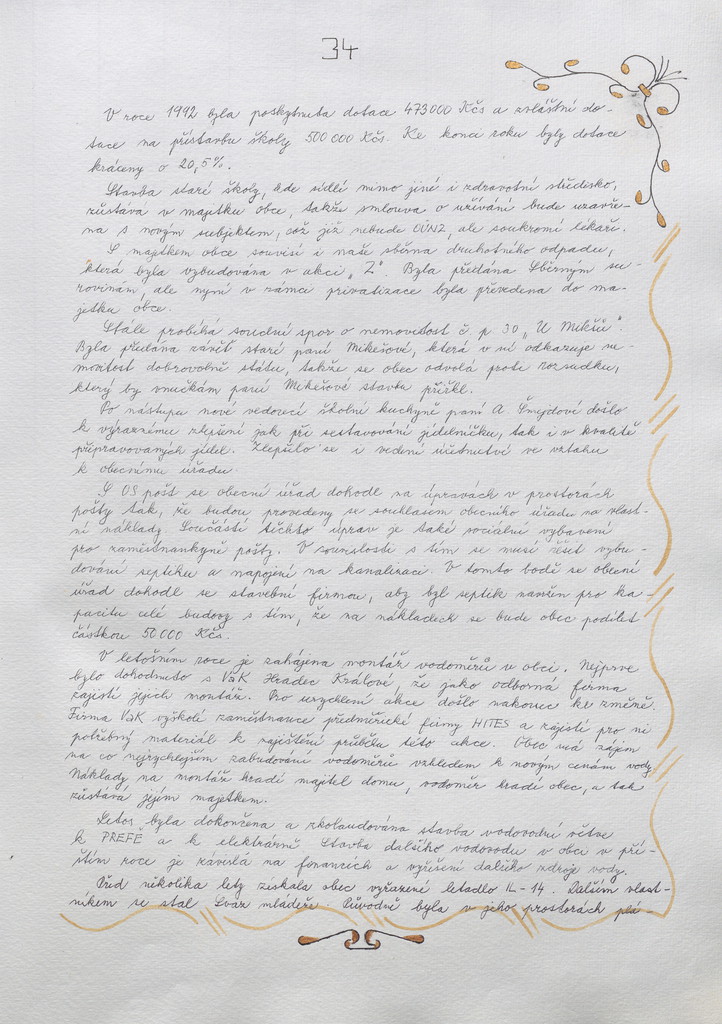 34
V roce 1992 byla poskytnuta dotace 473000 Kčs a zvláštní do-
tace na přístavbu školy 500 000 Kčs. Ke konci roku byly dotace
kráceny o 20,5%.
Stavba staré školy, kde sídlí mimo jiné i zdravotní středisko,
zůstává v majetku obce, takže smlouva o užívání bude uzavře-
na s novým subjektem, což již nebude OÚNZ, ale soukromí lékaři.
S majetkem obce souvisí i naše sběrna druhotného odpadu,
která byla vybudována v akci „Z". Byla předána Sběrným su-
rovinám, ale nyní v rámci privatizace byla převedena do ma-
jetku obce.
Stále probíhá soudní spor o nemovitost č. p. 30 „U Mikšů".
Byla předána závěť staré paní Mikešové, která v ní odkazuje ne-
movitost dobrovolně státu, takže se obec odvolá proti rozsudku,
který by vnučkám paní Mikešové stavbu přiřkl.
Po nástupu nové vedoucí školní kuchyně paní A. Šmejdové došlo
k výraznému zlepšení jak při sestavování jídelníčku, tak i v kvalitě
připravovaných jídel. Zlepšilo se i vedení účetnictví ve vztahu
k obecnímu úřadu.
S OS pošt se obecní úřad dohodl na úpravách v prostorách
pošty tak, že budou provedeny se souhlasem obecního úřadu na vlast-
ní náklady. Součástí těchto úprav je také sociální vybavení
pro zaměstnankyně pošty. V souvislosti s tím se musí řešit vybu-
dování septiku a napojení na kanalizaci. V tomto bodě se obecní
úřad dohodl se stavební firmou, aby byl septik navržen pro ka-
pacitu celé budovy s tím, že na nákladech se bude obec podílet
částkou 50 000 Kčs.
V letošním roce je zahájena montáž vodoměrů v obci. Nejprve
bylo dohodnuto s VaK Hradec Králové, že jako odborná firma
zajistí jejich montáž. Pro urychlení akce došlo nakonec ke změně.
Firma VaK vyškolí zaměstnance předměřické firmy HITES a zajistí pro ni
potřebný materiál k zajištění průběhu této akce. Obec má zájem
na co nejrychlejším zabudování vodoměrů vzhledem k novým cenám vody.
Náklady na montáž hradí majitel domu, vodoměr hradí obec, a tak
zůstává jejím majetkem.
Letos byla dokončena a zkolaudována stavba vodovodní větve
k PREFĚ a k elektrárně. Stavba dalšího vodovodu v obci v pří-
štím roce je závislá na financích a vyřešení dalšího zdroje vody.
Před několika lety získala obec vyřazené letadlo IL-14. Dalším vlast-
níkem se stal Svaz mládeže. Původně byla v jeho prostorách plá-